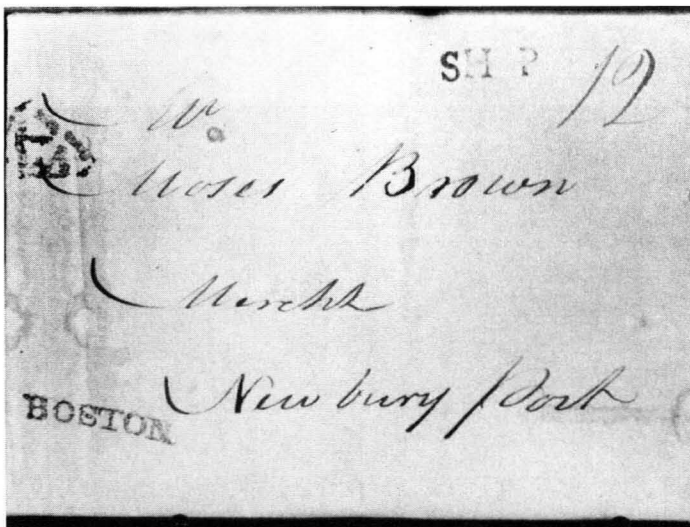 SHIP 12
Mr
Moses Brown
Mercht
Newbury Port
BOSTON